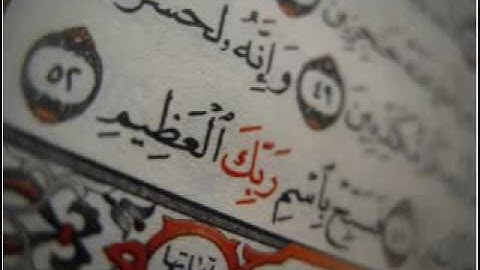 مُّكَذِّبِينَ ٤٩ وَإِنَّهُۥ لَحَسْرَ
فَسَبِّحْ بِٱسْمِ رَبِّكَ ٱلْعَظِيمِ ٥٢